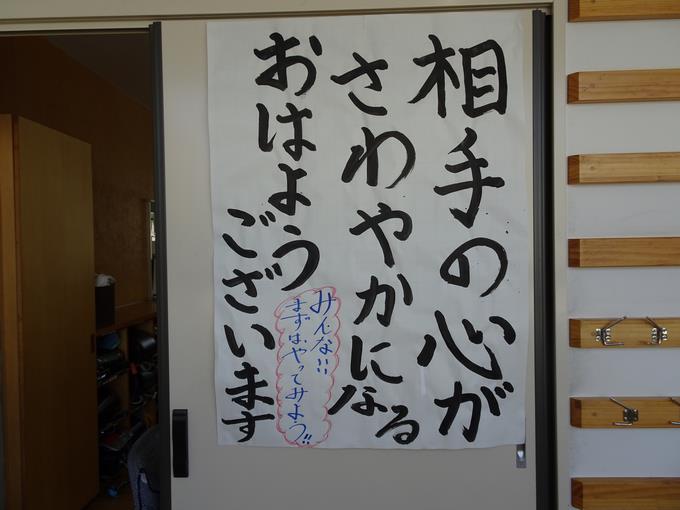 相手の心が
さわやかになる
おはよう
ございます
みんな!!
まずはやってみよう!!